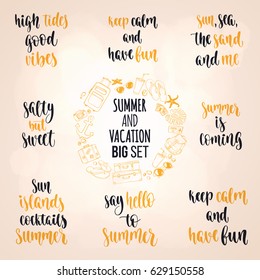 high tides
good
vibes
keep calm
and
have fun
sun, sea,
the sand,
and me
salty
but
sweet
SUMMER
AND
VACATION
BIG SET
Summer
is
coming
Sun
islands
cocktails
Summer
say hello
to
Summer
keep calm
and
have fun
shutterstock.com · 629150558